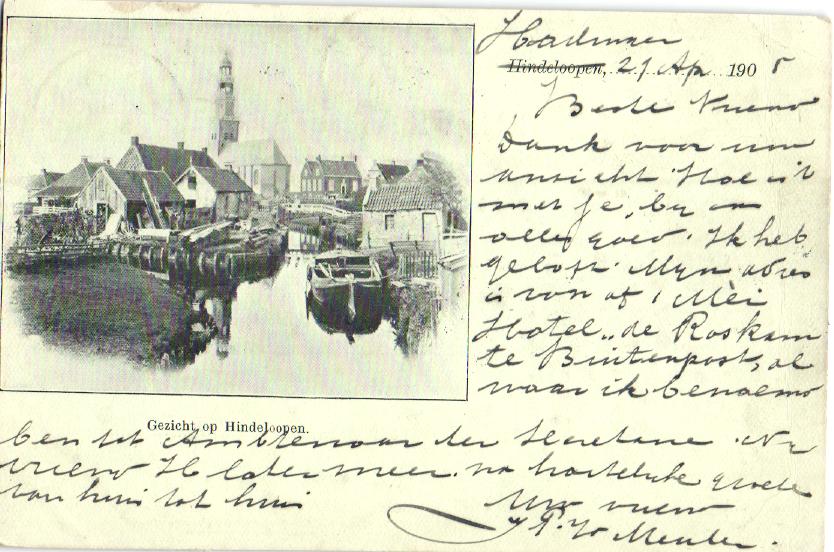 Hindeloopen, 21 Ap. 1905
Beste Vriend
Dank voor uw
ansicht. Hoe is't
met je, by ons
alles goed. Ik heb
geloft. Mijn adres
is van af 1 Mei
Hotel „de Roskam
te Buitenpost, al
waar ik benoemd
Gezicht op Hindeloopen.
ben tot Ambtenaar der Secretarie. Nu
vriend later meer. na hartelijke groete
van huis tot huis
Uw vriend
Meulen.